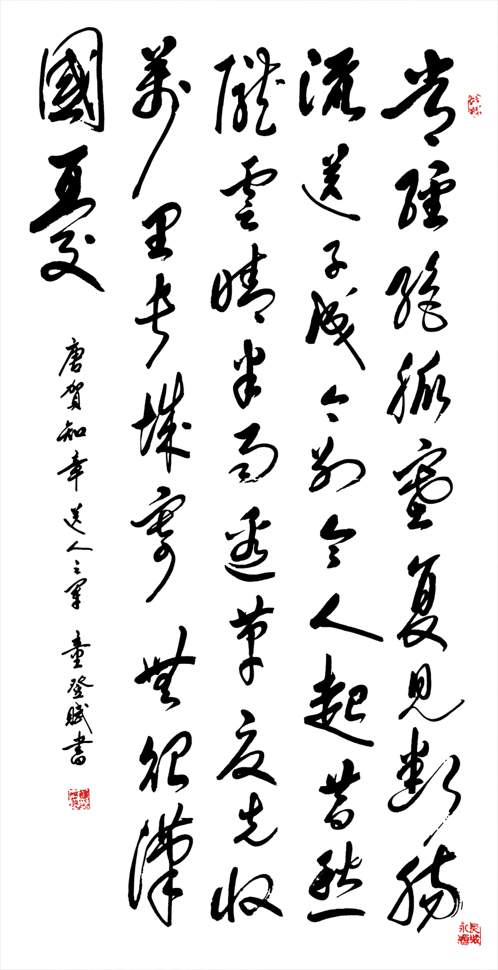 常經絕脈塞復見斷腸
流送子成今別令人起昔愁
隴雲晴半雨邊草夏先秋
萬里長城寄無貽漢
國憂
唐賀知章送人之軍 童登賦書